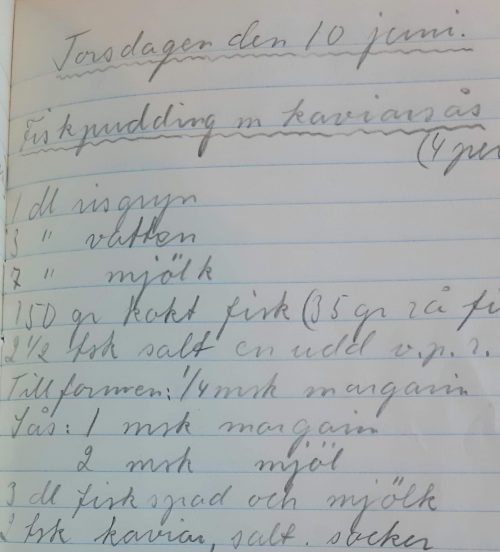 Torsdagen den 10 juni.
Fiskpudding m kaviarsås
(4 per
1 dl risgryn
3 " vatten
7 " mjölk
150 gr kokt fisk (35 gr rå fi
2 1/2 tsk salt en udd v.p. 2.
Till formen: 1/4 msk margarin
Sås: 1 msk margarin
2 msk mjöl
3 dl fiskspad och mjölk
2 tsk kaviar, salt. socker